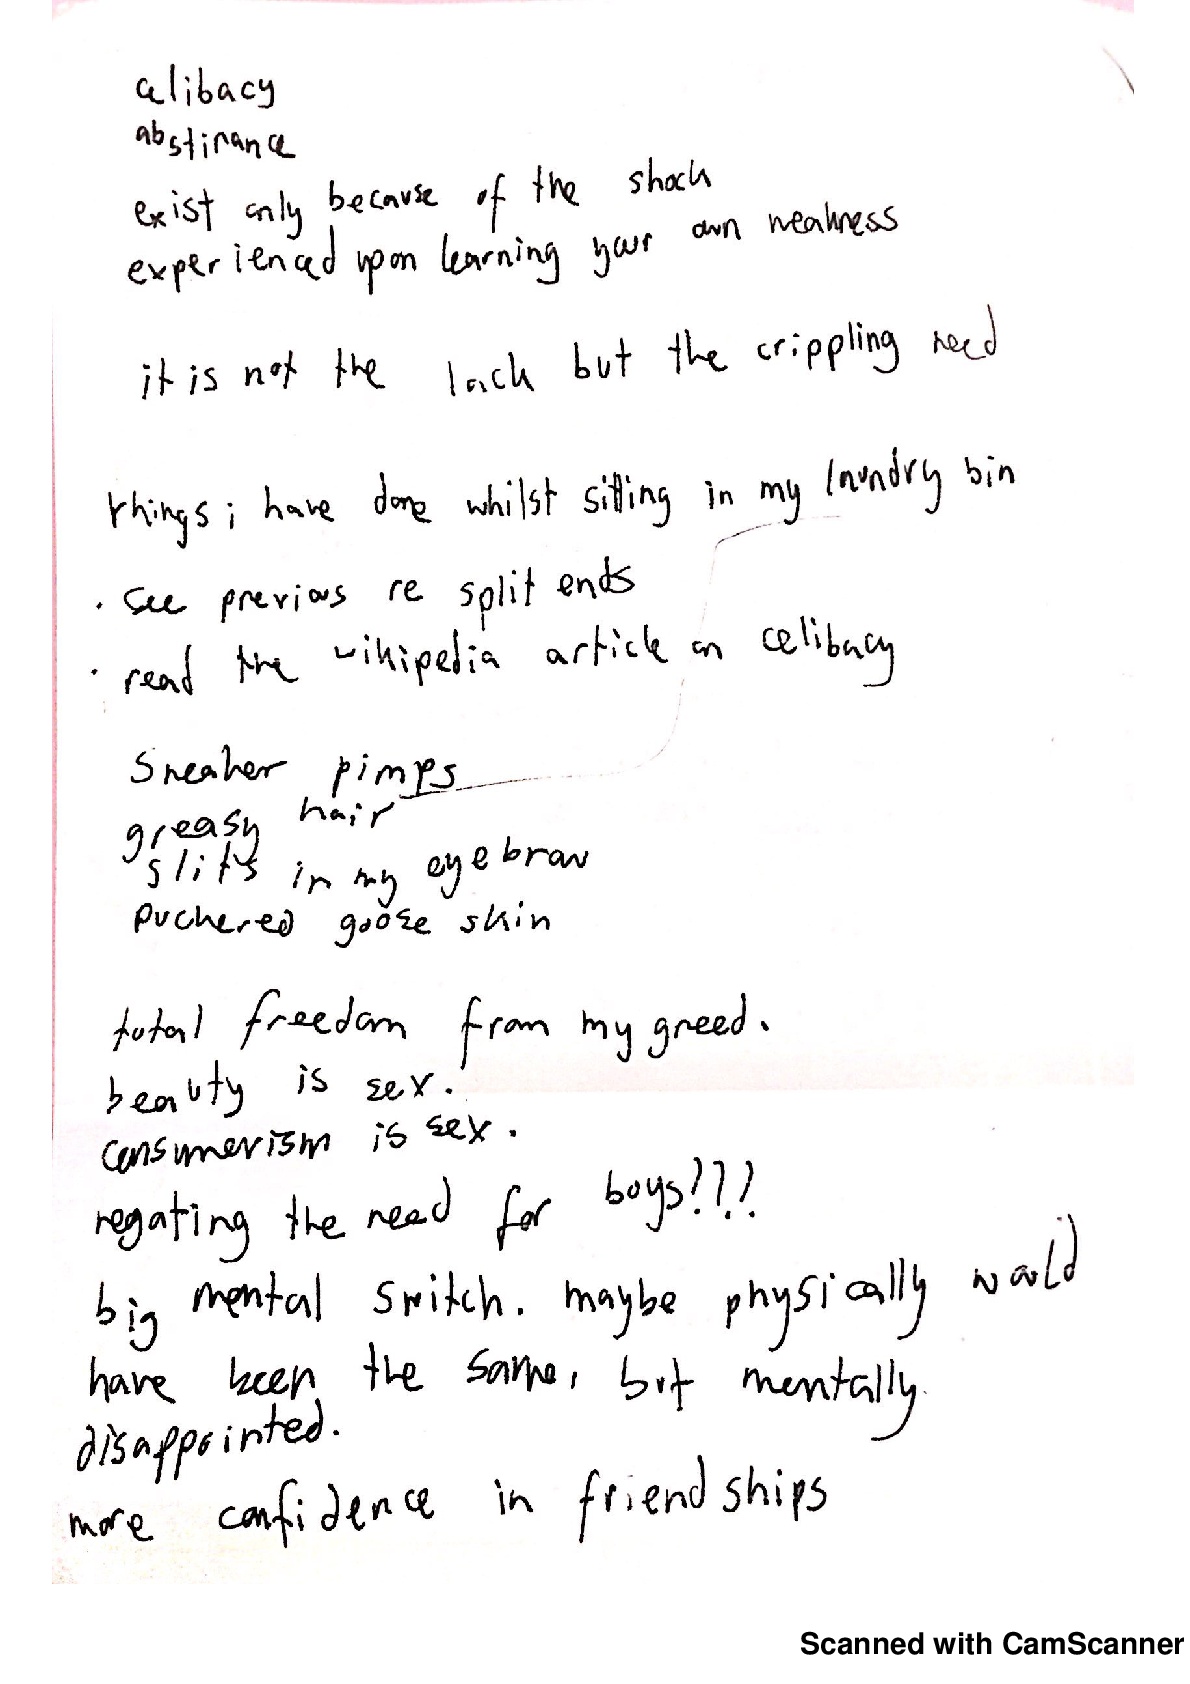 celibacy
abstinance
exist only because of the shock
experienced upon learning your own weakness
it is not the lack but the crippling need
things i have done whilst sitting in my laundry bin
· see previous re split ends
· read the wikipedia article on celibacy
sneaker pimps
greasy hair
slits in my eyebrow
puckered goose skin
total freedom from my greed.
beauty is sex.
consumerism is sex.
negating the need for boys!???
big mental switch. maybe physically would
have been the same, but mentally
disappointed.
more confidence in friendships
Scanned with CamScanner